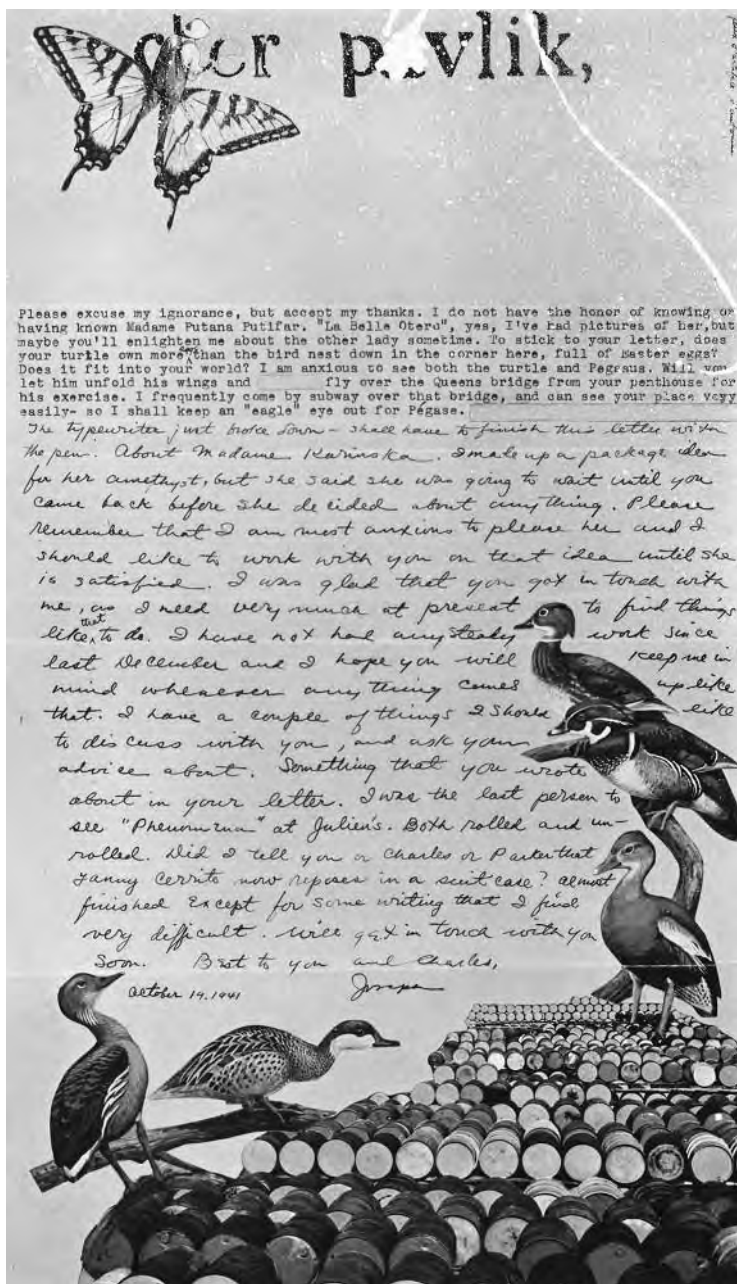 cher pavlik,
Please excuse my ignorance, but accept my thanks. I do not have the honor of knowing or
having known Madame Putana Putifar. "La Belle Otero", yes, I've had pictures of her,but
maybe you'll enlighten me about the other lady sometime. To stick to your letter, does
your turtle own more than the bird nest down in the corner here, full of Easter eggs?
Does it fit into your world? I am anxious to see both the turtle and Pegasus. Will you
let him unfold his wings and fly over the Queens bridge from your penthouse for
his exercise. I frequently come by subway over that bridge, and can see your place veyy
easily- so I shall keep an "eagle" eye out for Pégase.
The typewriter just broke down - shall have to finish this letter with
the pen. About Madame Karinska. I made up a package idea
for her amethyst, but she said she was going to wait until you
came back before she decided about anything. Please
remember that I am most anxious to please her and I
should like to work with you on that idea until she
is satisfied. I was glad that you got in touch with
me, as I need very much at present to find things
like that to do. I have not had any steady work since
last December and I hope you will keep me in
mind whenever anything comes up like
that. I have a couple of things I should like
to discuss with you, and ask your
advice about. Something that you wrote
about in your letter. I was the last person to
see "Phenomena" at Julien's. Both rolled and un-
rolled. Did I tell you or Charles or Parker that
Fanny Cerrito now reposes in a suit case? almost
finished except for some writing that I find
very difficult. Will get in touch with you
soon. Best to you and Charles,
October 19, 1941 Joseph